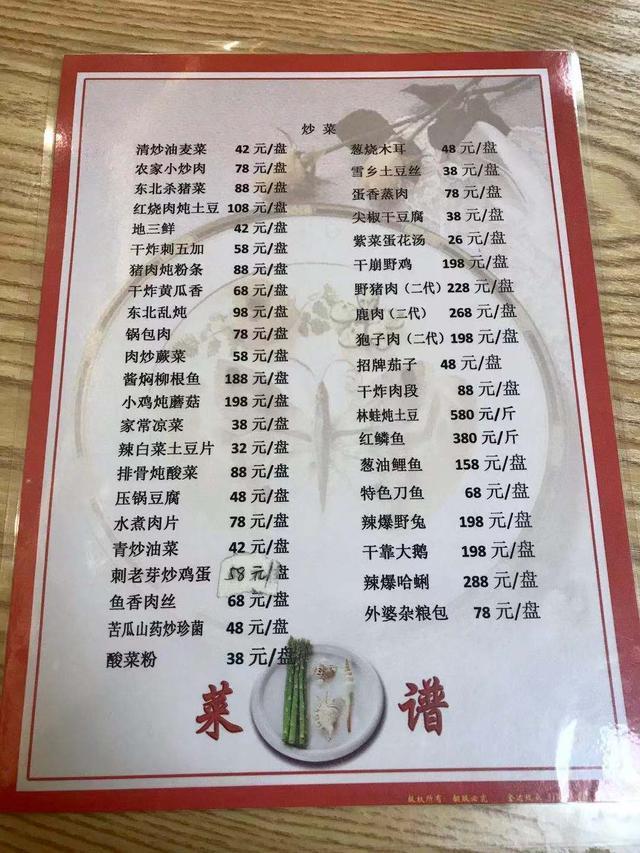 炒 菜
清炒油麦菜 42 元/盘
农家小炒肉 78 元/盘
东北杀猪菜 88 元/盘
红烧肉炖土豆 108 元/盘
地三鲜 42 元/盘
干炸刺五加 58 元/盘
猪肉炖粉条 88 元/盘
干炸黄瓜香 68 元/盘
东北乱炖 98 元/盘
锅包肉 78 元/盘
肉炒蕨菜 58 元/盘
酱焖柳根鱼 188 元/盘
小鸡炖蘑菇 198 元/盘
家常凉菜 38 元/盘
辣白菜土豆片 32 元/盘
排骨炖酸菜 88 元/盘
压锅豆腐 48 元/盘
水煮肉片 78 元/盘
青炒油菜 42 元/盘
刺老芽炒鸡蛋 58 元/盘
鱼香肉丝 68 元/盘
苦瓜山药炒珍菌 48 元/盘
酸菜粉 38 元/盘
葱烧木耳 48 元/盘
雪乡土豆丝 38 元/盘
蛋香蒸肉 78 元/盘
尖椒干豆腐 38 元/盘
紫菜蛋花汤 26 元/盘
干崩野鸡 198 元/盘
野猪肉（二代）228 元/盘
鹿肉（二代） 268 元/盘
狍子肉（二代）198 元/盘
招牌茄子 48 元/盘
干炸肉段 88 元/盘
林蛙炖土豆 580 元/斤
红鳞鱼 380 元/斤
葱油鲤鱼 158 元/盘
特色刀鱼 68 元/盘
辣爆野兔 198 元/盘
干靠大鹅 198 元/盘
辣爆哈蜊 288 元/盘
外婆杂粮包 78 元/盘
菜 谱
版权所有 翻版必究